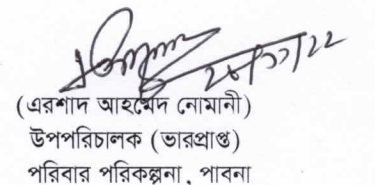 (এরশাদ আহমেদ নোমানী)
উপপরিচালক (ভারপ্রাপ্ত)
পরিবার পরিকল্পনা, পাবনা